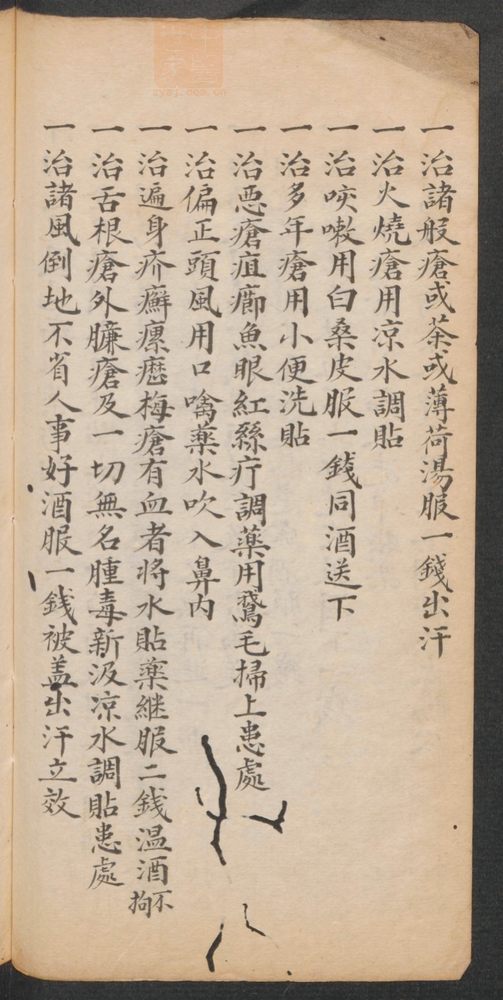 一治諸般瘡或茶或薄荷湯服一錢出汗
一治火燒瘡用凉水調貼
一治咳嗽用白桑皮服一錢同酒送下
一治多年瘡用小便洗貼
一治惡瘡疽癤魚眼紅絲疔調藥用鵞毛掃上患處
一治偏正頭風用口噙藥水吹入鼻内
一治遍身疥癬瘰癧梅瘡有血者將水貼藥継服二錢温酒不拘
一治舌根瘡外臁瘡及一切無名腫毒新汲凉水調貼患處
一治諸風倒地不省人事好酒服一錢被盖出汗立效